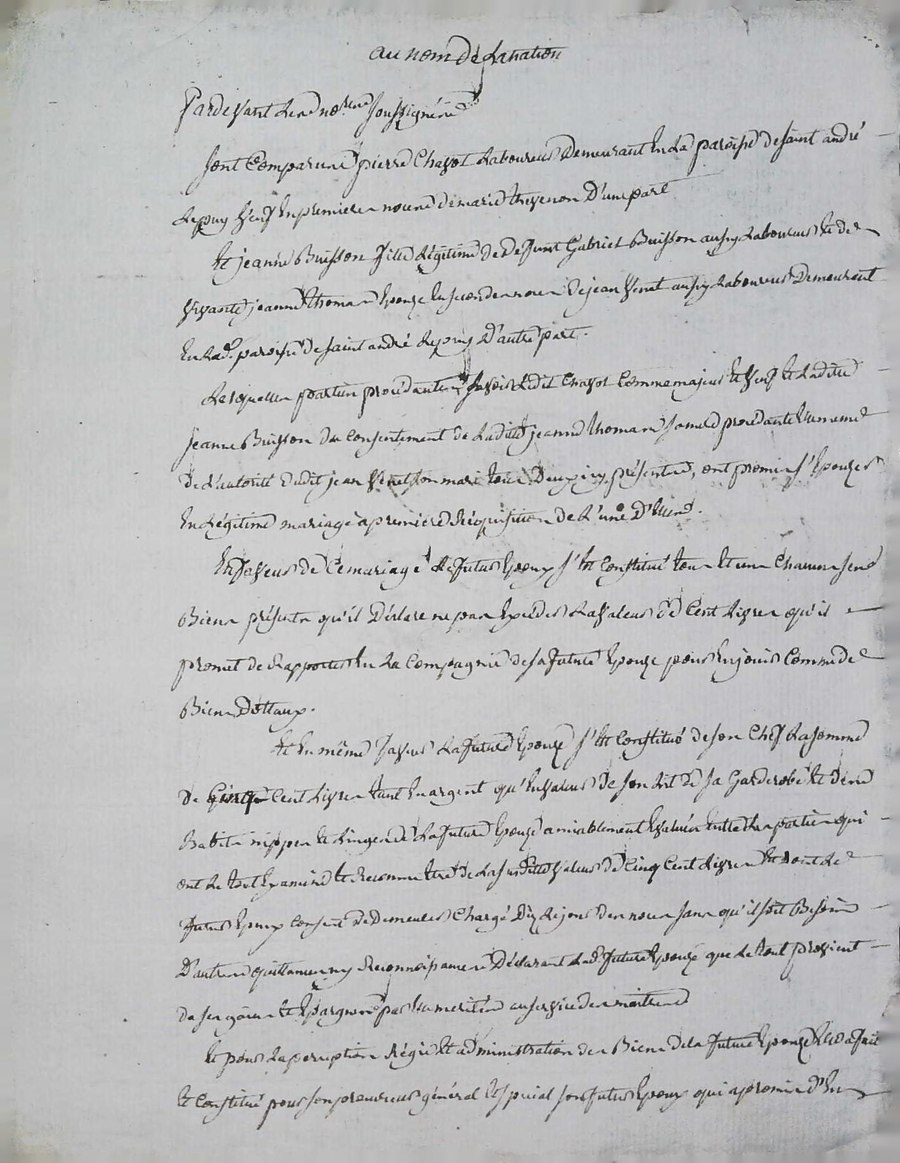 au nom de la nation
Pardevant les no.res soussignés
sont comparus pierre Chazot laboureur demeurant en la paroisse de saint andré
le puy veuf en premieres noces de marie thevenon d'une part
et jeanne Buisson fille légitime de defunt Gabriel Buisson aussy laboureur et de
vivante jeanne thomas épouze en secondes noces de jean Vinet aussy laboureur demeurant
en lad. paroisse de saint andré le puy d'autre part.
Lesquelles parties procédantes savoir ledit Chazot comme majeur et veuf et ladite
jeanne Buisson du consentement de ladite jeanne thomas sa mere procedante elle meme
de l'autorité dudit jean Vinet son mari tous deux icy présents, ont promis s'épouzer
en légitime mariage a premiere réquisition de l'une d'elles.
En faveur de ce mariage le futur époux s'est constitué tous et uns chacuns ses
biens présents qu'il déclare ne pas excéder la valeur de cent livres qu'il
promet de rapporter en la compagnie de sa future épouze pour en jouir comme de
biens dottaux.
et en même faveur la future épouze s'est constitué de son chef la somme
de cinq cent livres tant en argent qu'en valeur de son lit de sa garderobe et de ses
habits nippes et linges de la future épouze amiablement évalués entre les parties qui
ont le tout examiné et reconnu etre de la susditte valeur de cinq cent livres et dont le
futur époux consent de demeurer chargé dez le jour des noces sans qu'il soit besoin
d'autres quittances ny reconnoissances déclarant lad. future épouze que le tout provient
de ses gains et épargnes par elle merités au service des maitres
et pour la perception régie et administration des biens de la future épouze elle a fait
et constitué pour son procureur général et spécial son futur époux qui a promis d'en